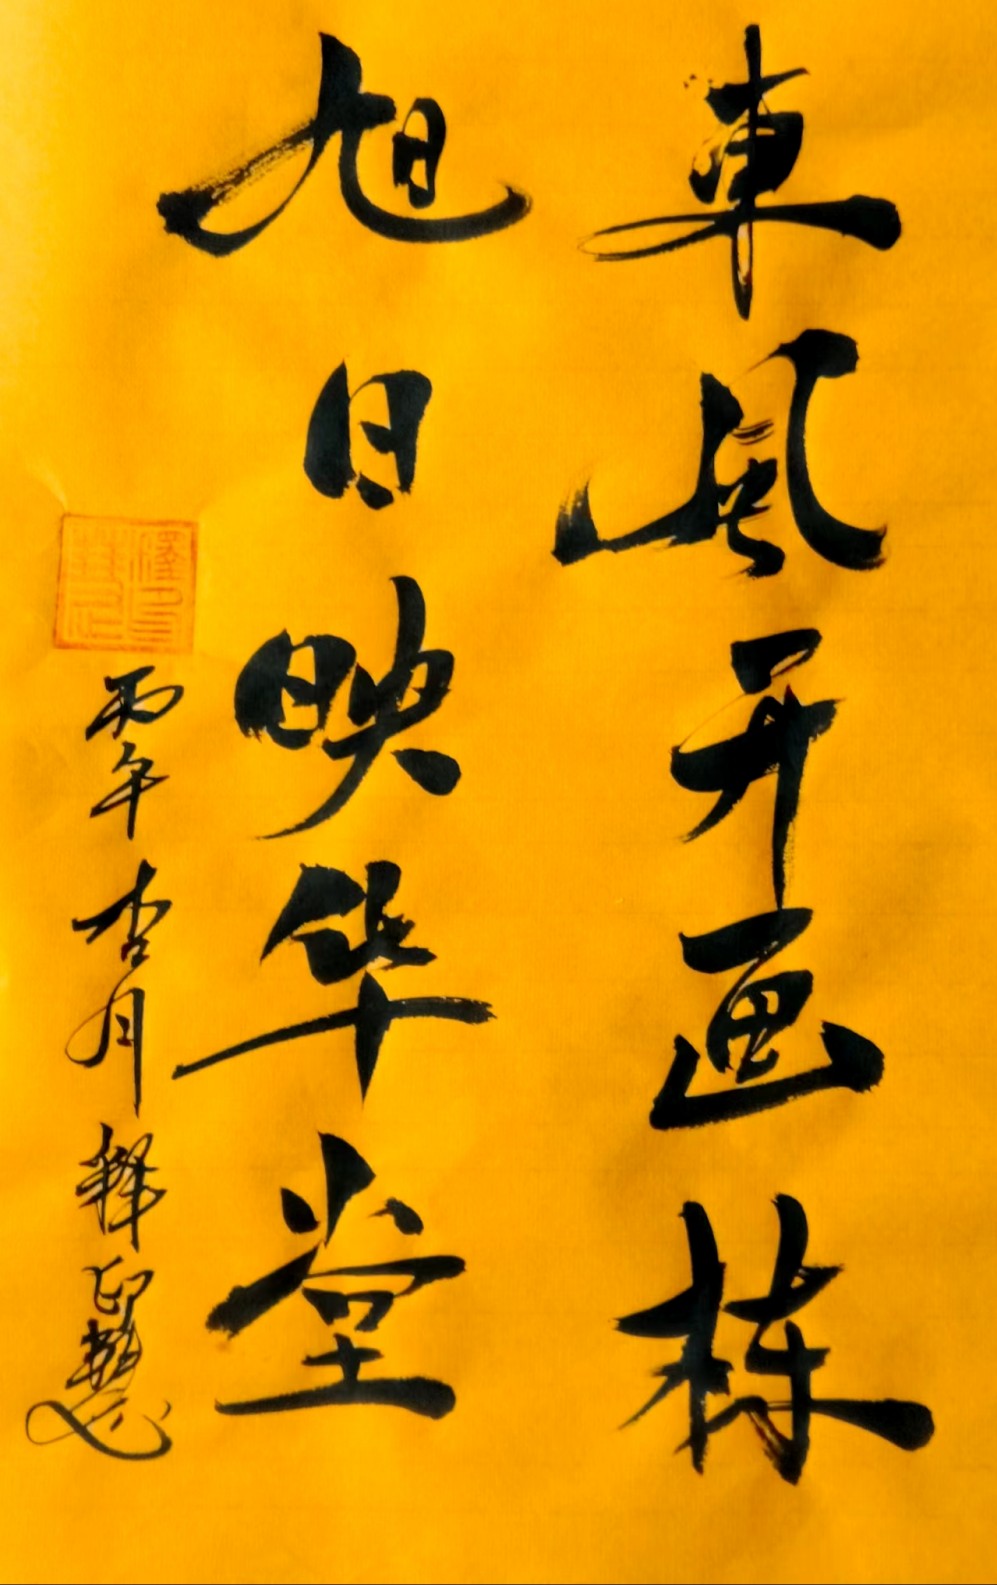 東風开画栋
旭日映华堂
丙午杏月释印慧